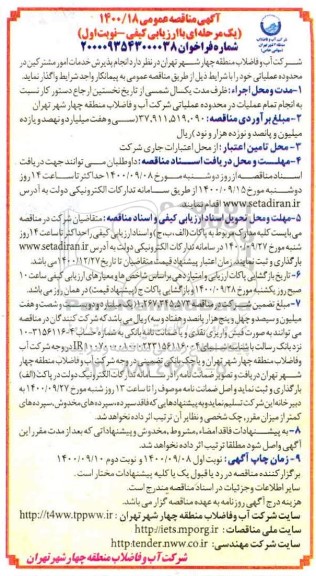 آگهی مناقصه عمومی ۱۴۰۰/۱۸
(یک مرحله ای با ارزیابی کیفی - نوبت اول)
شماره فراخوان ۲۰۰۰۰۹۳۵۴۳۰۰۰۰۳۸
شرکت آب و فاضلاب منطقه چهار شهر تهران در نظر دارد انجام پذیرش خدمات امور مشترکین در
محدوده عملیاتی خود را با شرایط ذیل از طریق مناقصه عمومی به پیمانکار واجد شرایط واگذار نماید.
۱-مدت و محل اجراء: ظرف مدت یکسال شمسی از تاریخ نخستین ارجاع دستور کار نسبت
به انجام تمام عملیات در محدوده عملیاتی شرکت آب و فاضلاب منطقه چهار شهر تهران
۲-مبلغ برآوردی مناقصه: ۳۷,۹۱۱,۵۱۹,۰۹۰ (سی و هفت میلیارد و نهصد و یازده
میلیون و پانصد و نوزده هزار و نود) ریال
۳- محل تامین اعتبار: از محل اعتبارات جاری شرکت
۴-مهلت و محل دریافت اسناد مناقصه: داوطلبان می توانند جهت دریافت
اسناد مناقصه از روز دوشنبه مورخ ۱۴۰۰/۰۹/۰۸ حداکثر تا ساعت ۱۴ روز
دوشنبه مورخ ۱۴۰۰/۰۹/۱۵ از طریق سامانه تدارکات الکترونیکی دولت به آدرس
www.setadiran.ir اقدام نمایند.
۵-مهلت و محل تحویل اسناد ارزیابی کیفی و اسناد مناقصه: متقاضیان شرکت در مناقصه
می بایست کلیه مدارک مربوط به پاکات (الف،ب،ج) و اسناد ارزیابی کیفی را حداکثر تا ساعت ۱۴ روز
شنبه مورخ ۱۴۰۰/۰۹/۲۷ در سامانه تدارکات الکترونیکی دولت به آدرس www.setadiran.ir
بارگذاری و ثبت نمایند. زمان اعتبار پیشنهاد قیمت متقاضیان تا تاریخ ۱۴۰۰/۱۲/۲۷ می باشد.
۶- تاریخ بازگشایی پاکات ارزیابی و امتیازدهی بر اساس شاخص ها و معیارهای ارزیابی کیفی ساعت ۱۰
صبح روز یکشنبه مورخ ۱۴۰۰/۰۹/۲۸ و بازگشایی پاکات ج (پیشنهاد قیمت)، در همان روز می باشد.
۷-مبلغ تضمین شرکت در مناقصه ۱,۲۶۷,۳۴۵,۵۷۳ (یک میلیارد و دویست و شصت و هفت
میلیون و سیصد و چهل و پنج هزار و پانصد و هفتاد و سه) ریال می باشد که شرکت کنندگان در مناقصه
می توانند به صورت فیش واریزی نقدی و یا ضمانت نامه بانکی به شماره حساب ۱۰۰۳۱۵۶۱۱۶۰۴
نزد بانک رسالت با شناسه شبای در وجه شرکت آب
و فاضلاب منطقه چهار شهر تهران و یا چک بانکی تضمین در وجه شرکت آب و فاضلاب منطقه چهار
شهر تهران دریافت و تصویر مستند را در سامانه تدارکات الکترونیک دولت در پاکت (الف)
بارگذاری و ثبت نماید و اصل ضمانت نامه موصوف را تا ساعت ۱۳ روز شنبه مورخ ۱۴۰۰/۰۹/۲۷ به
دبیرخانه این شرکت تسلیم نماید و به پیشنهادهایی که فاقد سپرده، سپرده های مخدوش، سپرده های
کمتر از میزان مقرر، چک شخصی و نظایر آن ترتیب اثر داده نخواهد شد.
۸- به پیشنهادات فاقد امضاء، مشروط، مخدوش و پیشنهاداتی که بعد از مدت مقرر این
آگهی واصل شود مطلقا ترتیب اثر داده نخواهد شد.
۹- زمان چاپ آگهی: نوبت اول ۱۴۰۰/۰۹/۰۸ و نوبت دوم ۱۴۰۰/۰۹/۱۰
برگزار کننده مناقصه در رد یا قبول یک یا کلیه پیشنهادات مختار است.
سایر اطلاعات و جزئیات در اسناد مناقصه مندرج است.
هزینه درج آگهی روزنامه به عهده مناقصه گزار می باشد.
سایت شرکت آب و فاضلاب منطقه چهار شهر تهران: http://t4ww.tpww.ir
سایت ملی مناقصات: http://iets.mporg.ir
سایت شرکت مهندسی: http:tender.nww.co.ir
شرکت آب و فاضلاب منطقه چهار شهر تهران